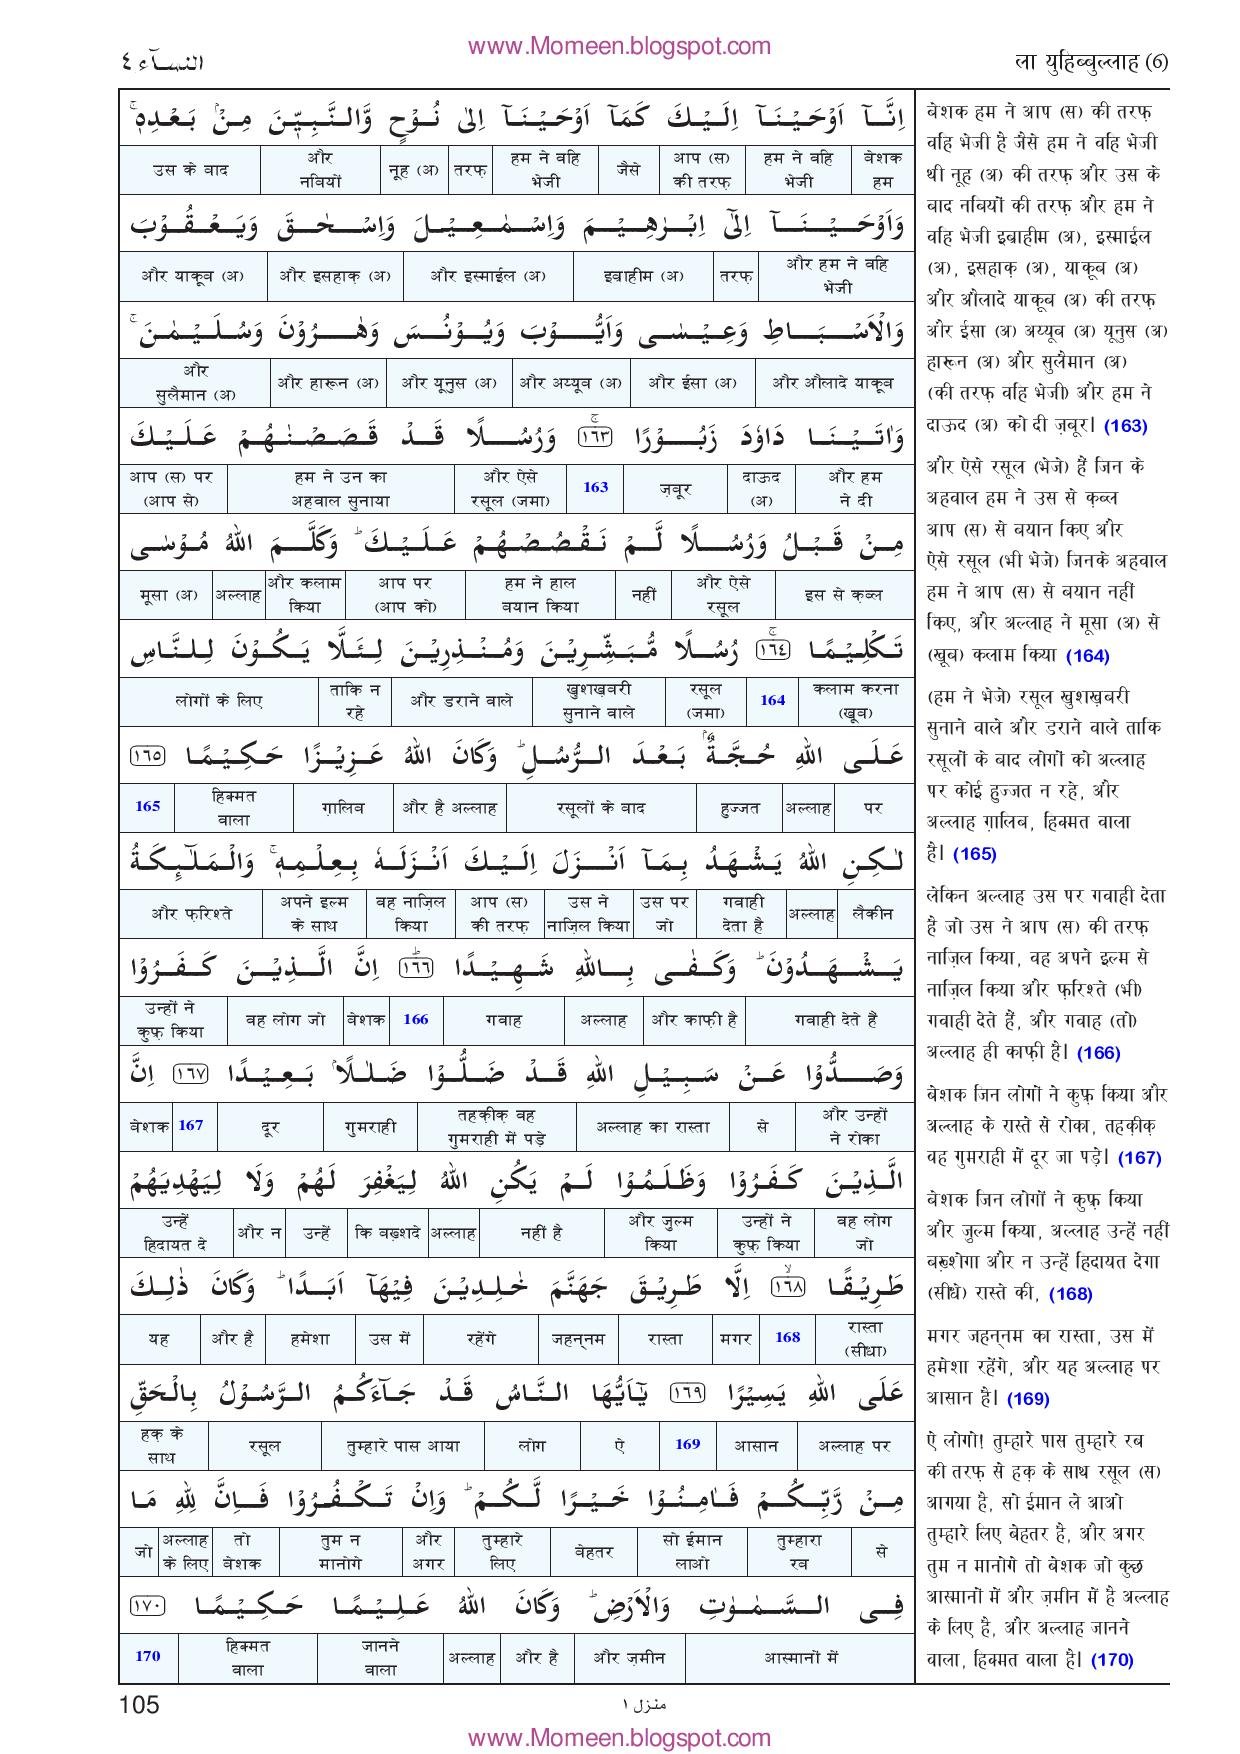 www.Momeen.blogspot.com
النسآء ٤
ला युहिब्बुल्लाह (6)
اِنَّاۤ اَوْحَيْنَاۤ اِلَيْكَ كَمَاۤ اَوْحَيْنَاۤ اِلٰى نُوْحٍ وَّالنَّبِيّٖنَ مِنْۢ بَعْدِهٖ ۚ
बेशक हम | हम ने वहि भेजी | आप (स) की तरफ़ | जैसे | हम ने वहि भेजी | तरफ़ | नूह (अ) | और नबियों | उस के बाद
وَاَوْحَيْنَاۤ اِلٰٓى اِبْرٰهِيْمَ وَاِسْمٰعِيْلَ وَاِسْحٰقَ وَيَعْقُوْبَ
और हम ने वहि भेजी | तरफ़ | इब्राहीम (अ) | और इस्माईल (अ) | और इसहाक़ (अ) | और याकूब (अ)
وَالْاَسْبَاطِ وَعِيْسٰى وَاَيُّوْبَ وَيُوْنُسَ وَهٰرُوْنَ وَسُلَيْمٰنَ ۚ
और औलादे याकूब | और ईसा (अ) | और अय्यूब (अ) | और यूनुस (अ) | और हारून (अ) | और सुलैमान (अ)
وَاٰتَيْنَا دَاوٗدَ زَبُوْرًا ۚ ١٦٣ وَرُسُلًا قَدْ قَصَصْنٰهُمْ عَلَيْكَ
और हम ने दी | दाऊद (अ) | ज़बूर | 163 | और ऐसे रसूल (जमा) | हम ने उन का अहवाल सुनाया | आप (स) पर (आप से)
مِنْ قَبْلُ وَرُسُلًا لَّمْ نَقْصُصْهُمْ عَلَيْكَ ؕ وَكَلَّمَ اللّٰهُ مُوْسٰى
इस से क़ब्ल | और ऐसे रसूल | नहीं | हम ने हाल बयान किया | आप पर (आप को) | और कलाम किया | अल्लाह | मूसा (अ)
تَكْلِيْمًا ۚ ١٦٤ رُسُلًا مُّبَشِّرِيْنَ وَمُنْذِرِيْنَ لِئَلَّا يَكُوْنَ لِلنَّاسِ
कलाम करना (खूब) | 164 | रसूल (जमा) | खुशख़बरी सुनाने वाले | और डराने वाले | ताकि न रहे | लोगों के लिए
عَلَى اللّٰهِ حُجَّةٌۢ بَعْدَ الرُّسُلِ ؕ وَكَانَ اللّٰهُ عَزِيْزًا حَكِيْمًا ١٦٥
पर | अल्लाह | हुज्जत | रसूलों के बाद | और है अल्लाह | ग़ालिब | हिक्मत वाला | 165
لٰكِنِ اللّٰهُ يَشْهَدُ بِمَاۤ اَنْزَلَ اِلَيْكَ اَنْزَلَهٗ بِعِلْمِهٖ ۚ وَالْمَلٰٓئِكَةُ
लैकीन | अल्लाह | गवाही देता है | उस पर जो | उस ने नाज़िल किया | आप (स) की तरफ़ | वह नाज़िल किया | अपने इल्म के साथ | और फ़रिश्ते
يَشْهَدُوْنَ ؕ وَكَفٰى بِاللّٰهِ شَهِيْدًا ؕ ١٦٦ اِنَّ الَّذِيْنَ كَفَرُوْا
गवाही देते हैं | और काफ़ी है | अल्लाह | गवाह | 166 | बेशक | वह लोग जो | उन्हों ने कुफ़्र किया
وَصَدُّوْا عَنْ سَبِيْلِ اللّٰهِ قَدْ ضَلُّوْا ضَلٰلًاۢ بَعِيْدًا ١٦٧ اِنَّ
और उन्हों ने रोका | से | अल्लाह का रास्ता | तहक़ीक़ वह गुमराही में पड़े | गुमराही | दूर | 167 | बेशक
الَّذِيْنَ كَفَرُوْا وَظَلَمُوْا لَمْ يَكُنِ اللّٰهُ لِيَغْفِرَ لَهُمْ وَلَا لِيَهْدِيَهُمْ
वह लोग जो | उन्हों ने कुफ़्र किया | और ज़ुल्म किया | नहीं है | अल्लाह | कि बख़्शदे | उन्हें | और न | उन्हें हिदायत दे
طَرِيْقًا ۙ ١٦٨ اِلَّا طَرِيْقَ جَهَنَّمَ خٰلِدِيْنَ فِيْهَاۤ اَبَدًا ؕ وَكَانَ ذٰلِكَ
रास्ता (सीधा) | 168 | मगर | रास्ता | जहन्नम | रहेंगे | उस में | हमेशा | और है | यह
عَلَى اللّٰهِ يَسِيْرًا ١٦٩ يٰۤاَيُّهَا النَّاسُ قَدْ جَآءَكُمُ الرَّسُوْلُ بِالْحَقِّ
अल्लाह पर | आसान | 169 | ऐ | लोग | तुम्हारे पास आया | रसूल | हक़ के साथ
مِنْ رَّبِّكُمْ فَاٰمِنُوْا خَيْرًا لَّكُمْ ؕ وَاِنْ تَكْفُرُوْا فَاِنَّ لِلّٰهِ مَا
से | तुम्हारा रब | सो ईमान लाओ | बेहतर | तुम्हारे लिए | और अगर | तुम न मानोगे | तो बेशक | अल्लाह के लिए | जो
فِى السَّمٰوٰتِ وَالْاَرْضِ ؕ وَكَانَ اللّٰهُ عَلِيْمًا حَكِيْمًا ١٧٠
आस्मानों में | और ज़मीन | और है | अल्लाह | जानने वाला | हिक्मत वाला | 170
बेशक हम ने आप (स) की तरफ़
वहि भेजी है जैसे हम ने वहि भेजी
थी नूह (अ) की तरफ़ और उस के
बाद नबियों की तरफ़ और हम ने
वहि भेजी इब्राहीम (अ), इस्माईल
(अ), इसहाक़ (अ), याकूब (अ)
और औलादे याकूब (अ) की तरफ़
और ईसा (अ) अय्यूब (अ) यूनुस (अ)
हारून (अ) और सुलैमान (अ)
(की तरफ़ वहि भेजी) और हम ने
दाऊद (अ) को दी ज़बूर। (163)
और ऐसे रसूल (भेजे) हैं जिन के
अहवाल हम ने उस से क़ब्ल
आप (स) से बयान किए और
ऐसे रसूल (भी भेजे) जिनके अहवाल
हम ने आप (स) से बयान नहीं
किए, और अल्लाह ने मूसा (अ) से
(खूब) कलाम किया (164)
(हम ने भेजे) रसूल खुशख़बरी
सुनाने वाले और डराने वाले ताकि
रसूलों के बाद लोगों को अल्लाह
पर कोई हुज्जत न रहे, और
अल्लाह ग़ालिब, हिक्मत वाला
है। (165)
लेकिन अल्लाह उस पर गवाही देता
है जो उस ने आप (स) की तरफ़
नाज़िल किया, वह अपने इल्म से
नाज़िल किया और फ़रिश्ते (भी)
गवाही देते हैं, और गवाह (तो)
अल्लाह ही काफ़ी है। (166)
बेशक जिन लोगों ने कुफ़्र किया और
अल्लाह के रास्ते से रोका, तहक़ीक़
वह गुमराही में दूर जा पड़े। (167)
बेशक जिन लोगों ने कुफ़्र किया
और ज़ुल्म किया, अल्लाह उन्हें नहीं
बख़्शेगा और न उन्हें हिदायत देगा
(सीधे) रास्ते की, (168)
मगर जहन्नम का रास्ता, उस में
हमेशा रहेंगे, और यह अल्लाह पर
आसान है। (169)
ऐ लोगो! तुम्हारे पास तुम्हारे रब
की तरफ़ से हक़ के साथ रसूल (स)
आगया है, सो ईमान ले आओ
तुम्हारे लिए बेहतर है, और अगर
तुम न मानोगे तो बेशक जो कुछ
आस्मानों में और ज़मीन में है अल्लाह
के लिए है, और अल्लाह जानने
वाला, हिक्मत वाला है। (170)
105
منزل ١
www.Momeen.blogspot.com